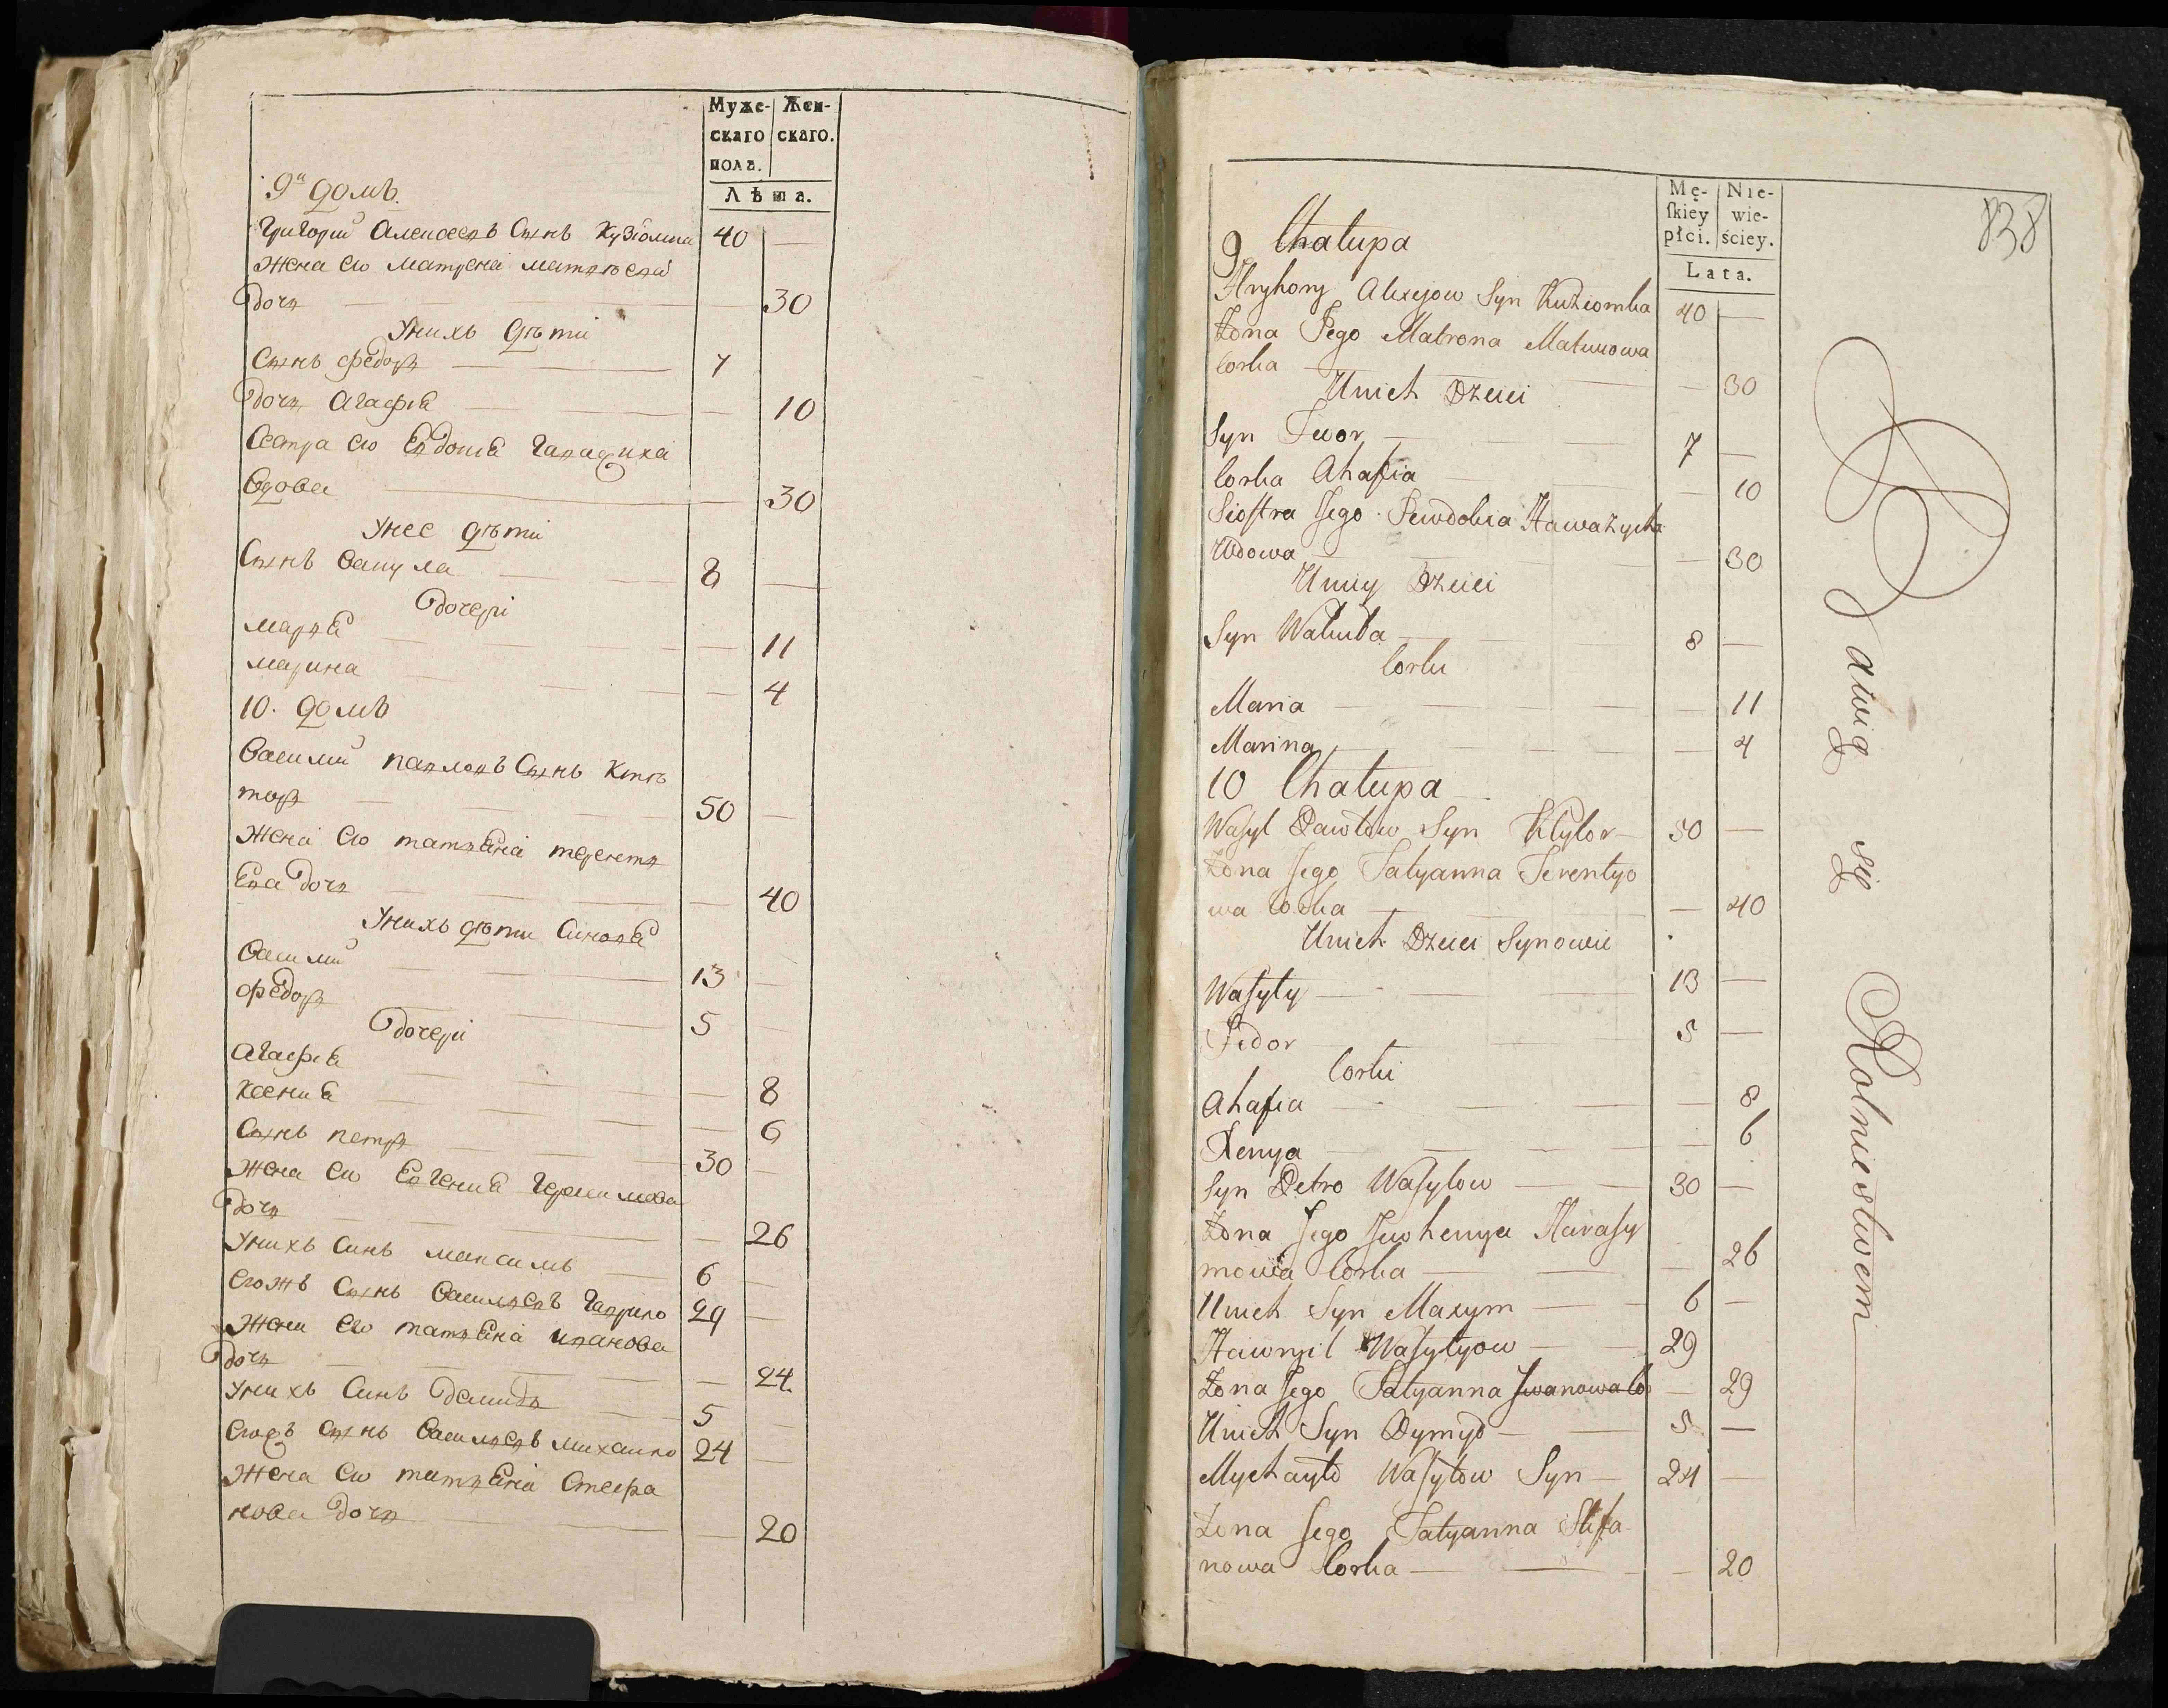 Муже- Жен-
скаго скаго.
пола.
Лѣта.
9й домъ.
Григорий Алексеевъ Сынъ Кузіомка 40 —
жена его матрена матвѣева
дочь — 30
Унихъ дѣти
Сынъ федоръ — 7
дочь Агафиа — 10
Сестра его Евдокиа
вдова — 30
Унее дѣти
Сынъ вакула — 8 —
дочери
мариа — 11
марина — 4
10. домъ
Василий павловъ Сынъ Кти
торъ — 50 —
жена его татиана теренти
ева дочь — 40
Унихъ дѣти Синовиа
Василий — 13 —
федоръ — 5 —
дочери
Агафиа — 8
Ксениа — 6
Сынъ петръ — 30 —
жена его Евгениа Герасимова
дочь — 26
Унихъ Синъ максимъ — 6 —
Егожъ Сынъ Васильевъ Гаврило 29 —
жена его татиана иванова
дочь — 24
Унихъ Синъ демидъ — 5 —
Сынъ Васильевъ михайло 24 —
жена его татиана Стефа
нова дочь — 20
Mę- Nie-
skiey wie-
płci. ściey.
Lata.
838
9 Chałupa
Hryhory Alexejow Syn Kuziomka 40 —
Żona Jego Matrona
Corka — 30
Unich Dzieci
Syn Fedor — 7 —
Corka Ahafia — 10
Siostra Jego Jewdokia Haważycha
Wdowa — 30
Uniey Dzieci
Syn Wakuła — 8 —
Corki
Maria — 11
Marina — 4
10 Chałupa
Wasyl Pawłow Syn Ktytor — 50 —
Żona Jego Tatyanna Terentyo
wa Corka — 40
Unich Dzieci Synowie
Wasyly — 13 —
Fedor — 5 —
Corki
Ahafia — 8
Xenya — 6
Syn Petro Wasylow — 30 —
Żona Jego Jewhenya Harasy
mowa Corka — 26
Unich Syn Maxym — 6 —
Hawryil Wasylyow — 29
Żona Jego Tatyanna Jwanowa Co — 29
Unich Syn Dymyd — 5 —
Mychayło Wasylow Syn — 24 —
Żona Jego Tatyanna Stefa
nowa Corka — 20
Bawią się Rolnictwem